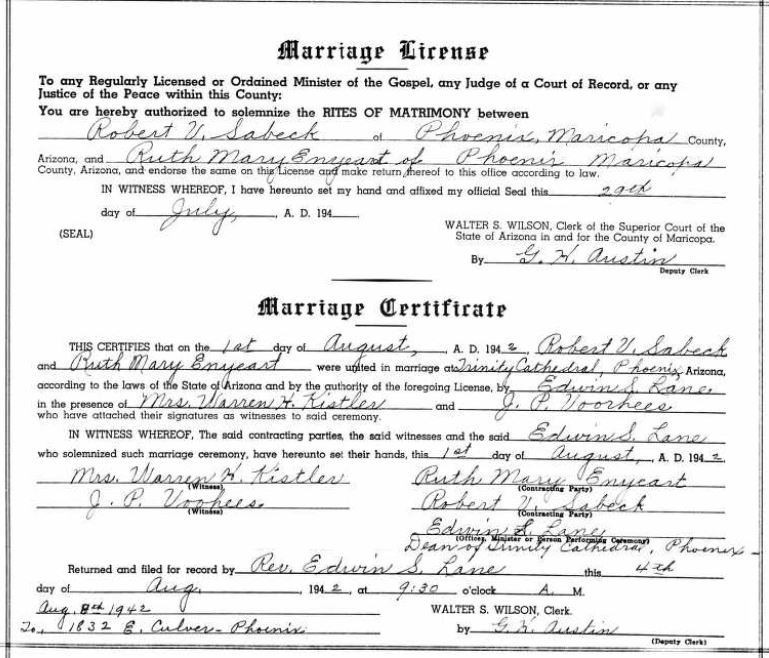 Marriage License
To any Regularly Licensed or Ordained Minister of the Gospel, any Judge of a Court of Record, or any
Justice of the Peace within this County:
You are hereby authorized to solemnize the RITES OF MATRIMONY between
Robert V. Sabeck of Phoenix, Maricopa County,
Arizona, and Ruth Mary Enycart of Phoenix Maricopa
County, Arizona, and endorse the same on this License and make return thereof to this office according to law.
IN WITNESS WHEREOF, I have hereunto set my hand and affixed my official Seal this 29th
day of July, A. D. 194
(SEAL)
WALTER S. WILSON, Clerk of the Superior Court of the
State of Arizona in and for the County of Maricopa.
By G. K. Austin
Deputy Clerk
Marriage Certificate
THIS CERTIFIES that on the 1st day of August, A. D. 1942, Robert V. Sabeck
and Ruth Mary Enycart were united in marriage at Trinity Cathedral, Phoenix, Arizona,
according to the laws of the State of Arizona and by the authority of the foregoing License, by Edwin S. Lane
in the presence of Mrs. Warren H. Kistler and J. P. Voorhees
who have attached their signatures as witnesses to said ceremony.
IN WITNESS WHEREOF, The said contracting parties, the said witnesses and the said Edwin S. Lane
who solemnized such marriage ceremony, have hereunto set their hands, this 1st day of August, A. D. 1942.
Mrs. Warren H. Kistler Ruth Mary Enycart
(Witness) (Contracting Party)
J. P. Voohees. Robert V. Sabeck
(Witness) (Contracting Party)
Edwin S. Lane
(Officer, Minister or Person Performing Ceremony)
Dean of Trinity Cathedral, Phoenix
Returned and filed for record by Rev. Edwin S. Lane this 4th
day of Aug. 1942, at 9:30 o'clock A. M.
Aug. 8th 1942 WALTER S. WILSON, Clerk.
To, 1832 E. Culver - Phoenix by G. K. Austin
(Deputy Clerk)